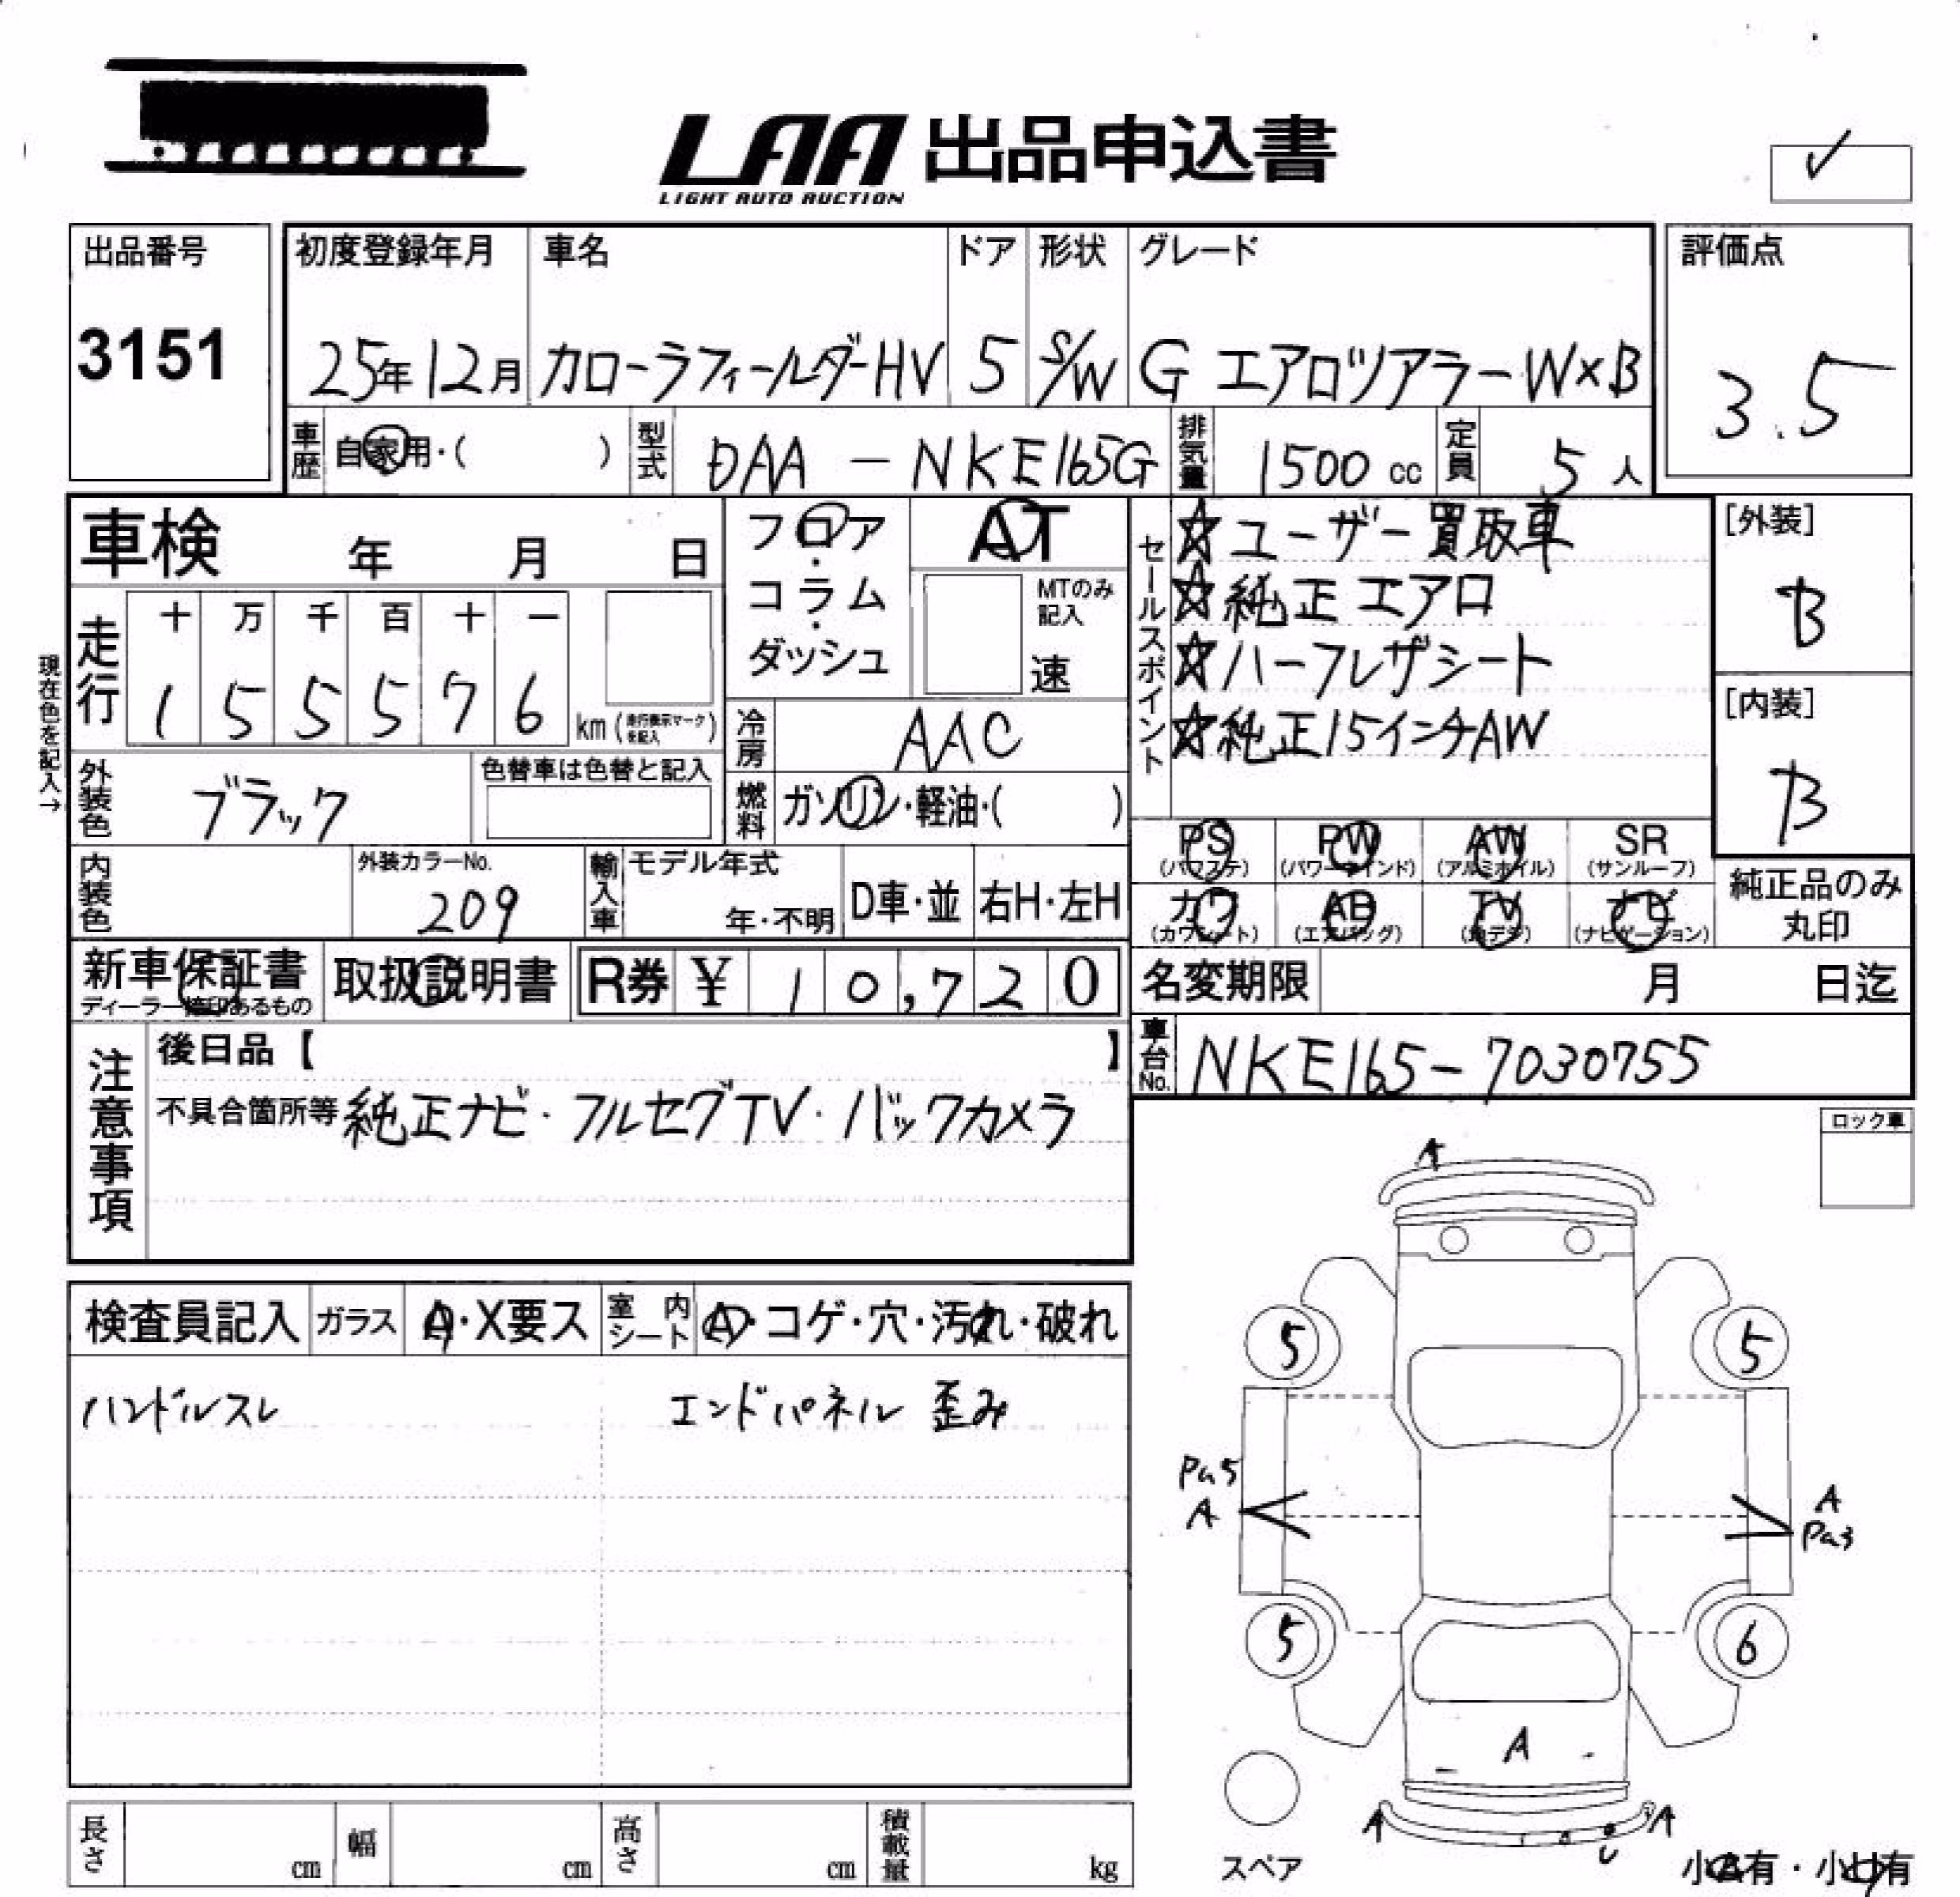 LAA 出品申込書
LIGHT AUTO AUCTION
出品番号
3151
初度登録年月
25年12月
車名
カローラフィールダーHV
ドア
5
形状
S/W
グレード
G エアロツアラーW×B
評価点
3.5
車歴 自家用・( )
型式 DAA-NKE165G
排気量 1500 cc
定員 5 人
車検 年 月 日
フロア・コラム・ダッシュ
AT
MTのみ記入
速
セールスポイント
☆ユーザー買取車
☆純正エアロ
☆ハーフレザシート
☆純正15インチAW
[外装]
B
[内装]
B
現在色を記入→
走行
十 万 千 百 十 一
1 5 5 5 7 6
km (走行表示マークを記入)
冷房 AAC
外装色 ブラック
色替車は色替と記入
燃料 ガソリン・軽油・( )
内装色
外装カラーNo.
209
輸入車
モデル年式
年・不明
D車・並
右H・左H
PS PW AW SR
(パワステ) (パワーウインド) (アルミホイル) (サンルーフ)
カワ AB TV ナビ
(カワシート) (エアバッグ) (地デジ) (ナビゲーション)
純正品のみ
丸印
新車保証書
ディーラー捺印あるもの
取扱説明書
R券 ¥ 10,720
名変期限 月 日迄
車台No. NKE165-7030755
注意事項
後日品【 】
不具合箇所等 純正ナビ・フルセグTV・バックカメラ
ロック車
検査員記入
ガラス A・X要ス
室内シート A・コゲ・穴・汚れ・破れ
ハンドルスレ
エンドパネル 歪み
A
5 5
Pa5
A
A
Pa3
5 6
A
A A
スペア
小A有・小U有
長さ cm
幅 cm
高さ cm
積載量 kg